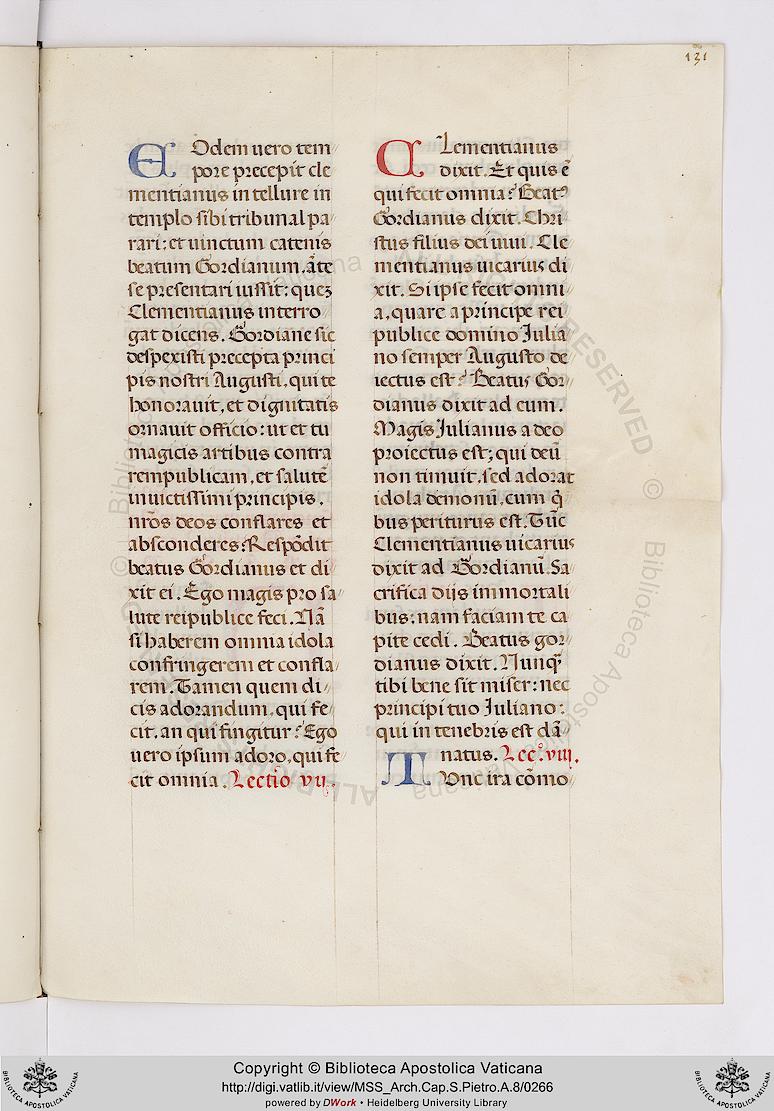 131
EOdem uero tem
pore precepit cle
mentianus in tellure in
templo sibi tribunal pa
rari: et uinctum catenis
beatum Gordianum, ãte
se presentari iussit: quez
Clementianus interro
gat dicens. Gordiane sic
despexisti precepta princi
pis nostri Augusti, qui te
honorauit, et dignitatis
ornauit officio: ut et tu
magicis artibus contra
rempublicam, et salutẽ
inuictissimi principis,
nr̃os deos conflares et
absconderes? Respõdit
beatus Gordianus et di
xit ei. Ego magis pro sa
lute reipublice feci. Nã
si haberem omnia idola
confringerem et confla
rem. Tamen quem di
cis adorandum, qui fe
cit, an qui fingitur? Ego
uero ipsum adoro, qui fe
cit omnia. Lectio vij.
CLementianus
dixit. Et quis ẽ
qui fecit omnia? Beatꝰ
Gordianus dixit. Chri
stus filius dei uiui. Cle
mentianus uicarius di
xit. Si ipse fecit omni
a, quare a principe rei
publice domino Julia
no semper Augusto de
iectus est? Beatus Gor
dianus dixit ad eum.
Magis Julianus a deo
proiectus est; qui deũ
non timuit, sed adorat
idola demonũ, cum q̃
bus periturus est. Tũc
Clementianus uicarius
dixit ad Gordianũ. Sa
crifica dijs immortali
bus: nam faciam te ca
pite cedi. Beatus gor
dianus dixit. Nunq̃
tibi bene sit miser: nec
principi tuo Juliano:
qui in tenebris est dã
natus. Lec̊. viij.
TUnc ira cõmo
Copyright © Biblioteca Apostolica Vaticana
http://digi.vatlib.it/view/MSS_Arch.Cap.S.Pietro.A.8/0266
powered by DWork • Heidelberg University Library
BIBLIOTECA APOSTOLICA VATICANA
BIBLIOTECA APOSTOLICA VATICANA